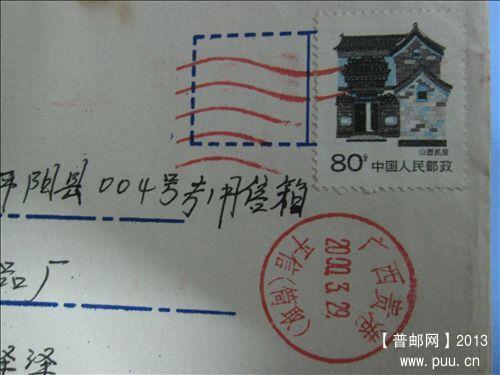 山西民居
80分 中国人民邮政
平阳县004号专用信箱
广西贵港
2000.3.29.
平信(简函)
品厂
泽泽
【普邮网】2013
www.puu.cn